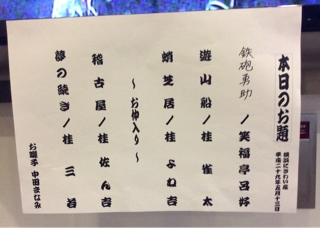 本日のお題
横浜にぎわい座
平成二十九年五月十三日
鉄砲勇助 / 笑福亭呂好
遊山船 / 桂 雀太
蛸芝居 / 桂 よね吉
〜お仲入り〜
稽古屋 / 桂 佐ん吉
夢の続き / 桂 三若
お囃子 中田まなみ